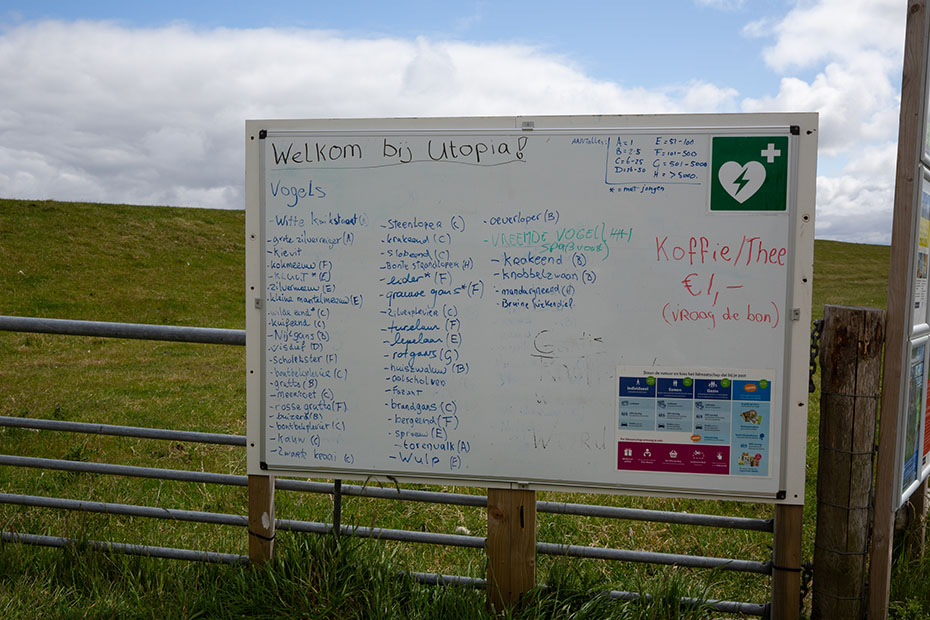 Welkom bij Utopia!
AANTALLEN:
A = 1
B = 2-5
C = 6-25
D = 26-50
E = 51-100
F = 101-500
G = 501-5000
H = > 5000.
* = met jongen
Vogels
- Witte kwikstaart
- grote zilverreiger (A)
- kievit
- kokmeeuw (F)
- KLUUT * (E)
- zilvermeeuw (E)
- kleine mantelmeeuw (E)
- wilde eend * (C)
- kuifeend (C)
- Nijlgans (B)
- visdief (D)
- scholekster (F)
- bontbekplevier (C)
- grutto (B)
- meerkoet (C)
- rosse grutto (F)
- buizerd (B)
- bontbekplevier (C)
- kauw (C)
- zwarte kraai (C)
- steenloper (C)
- krakeend (C)
- slobeend (C)
- Bonte strandloper (H)
- eider * (F)
- grauwe gans * (F)
- zilverplevier (C)
- tureluur (F)
- lepelaar (E)
- rotgans (G)
- huiszwaluw (B)
- aalscholver
- Fazant
- brandgans (C)
- bergeend (F)
- spreeuw (E)
- torenvalk (A)
- Wulp (E)
- oeverloper (B)
- VREEMDE VOGEL
- krakeend (B)
- knobbelzwaan (D)
- mandarijneend (A)
- Bruine kiekendief
Koffie/Thee
€1,-
(vraag de bon)